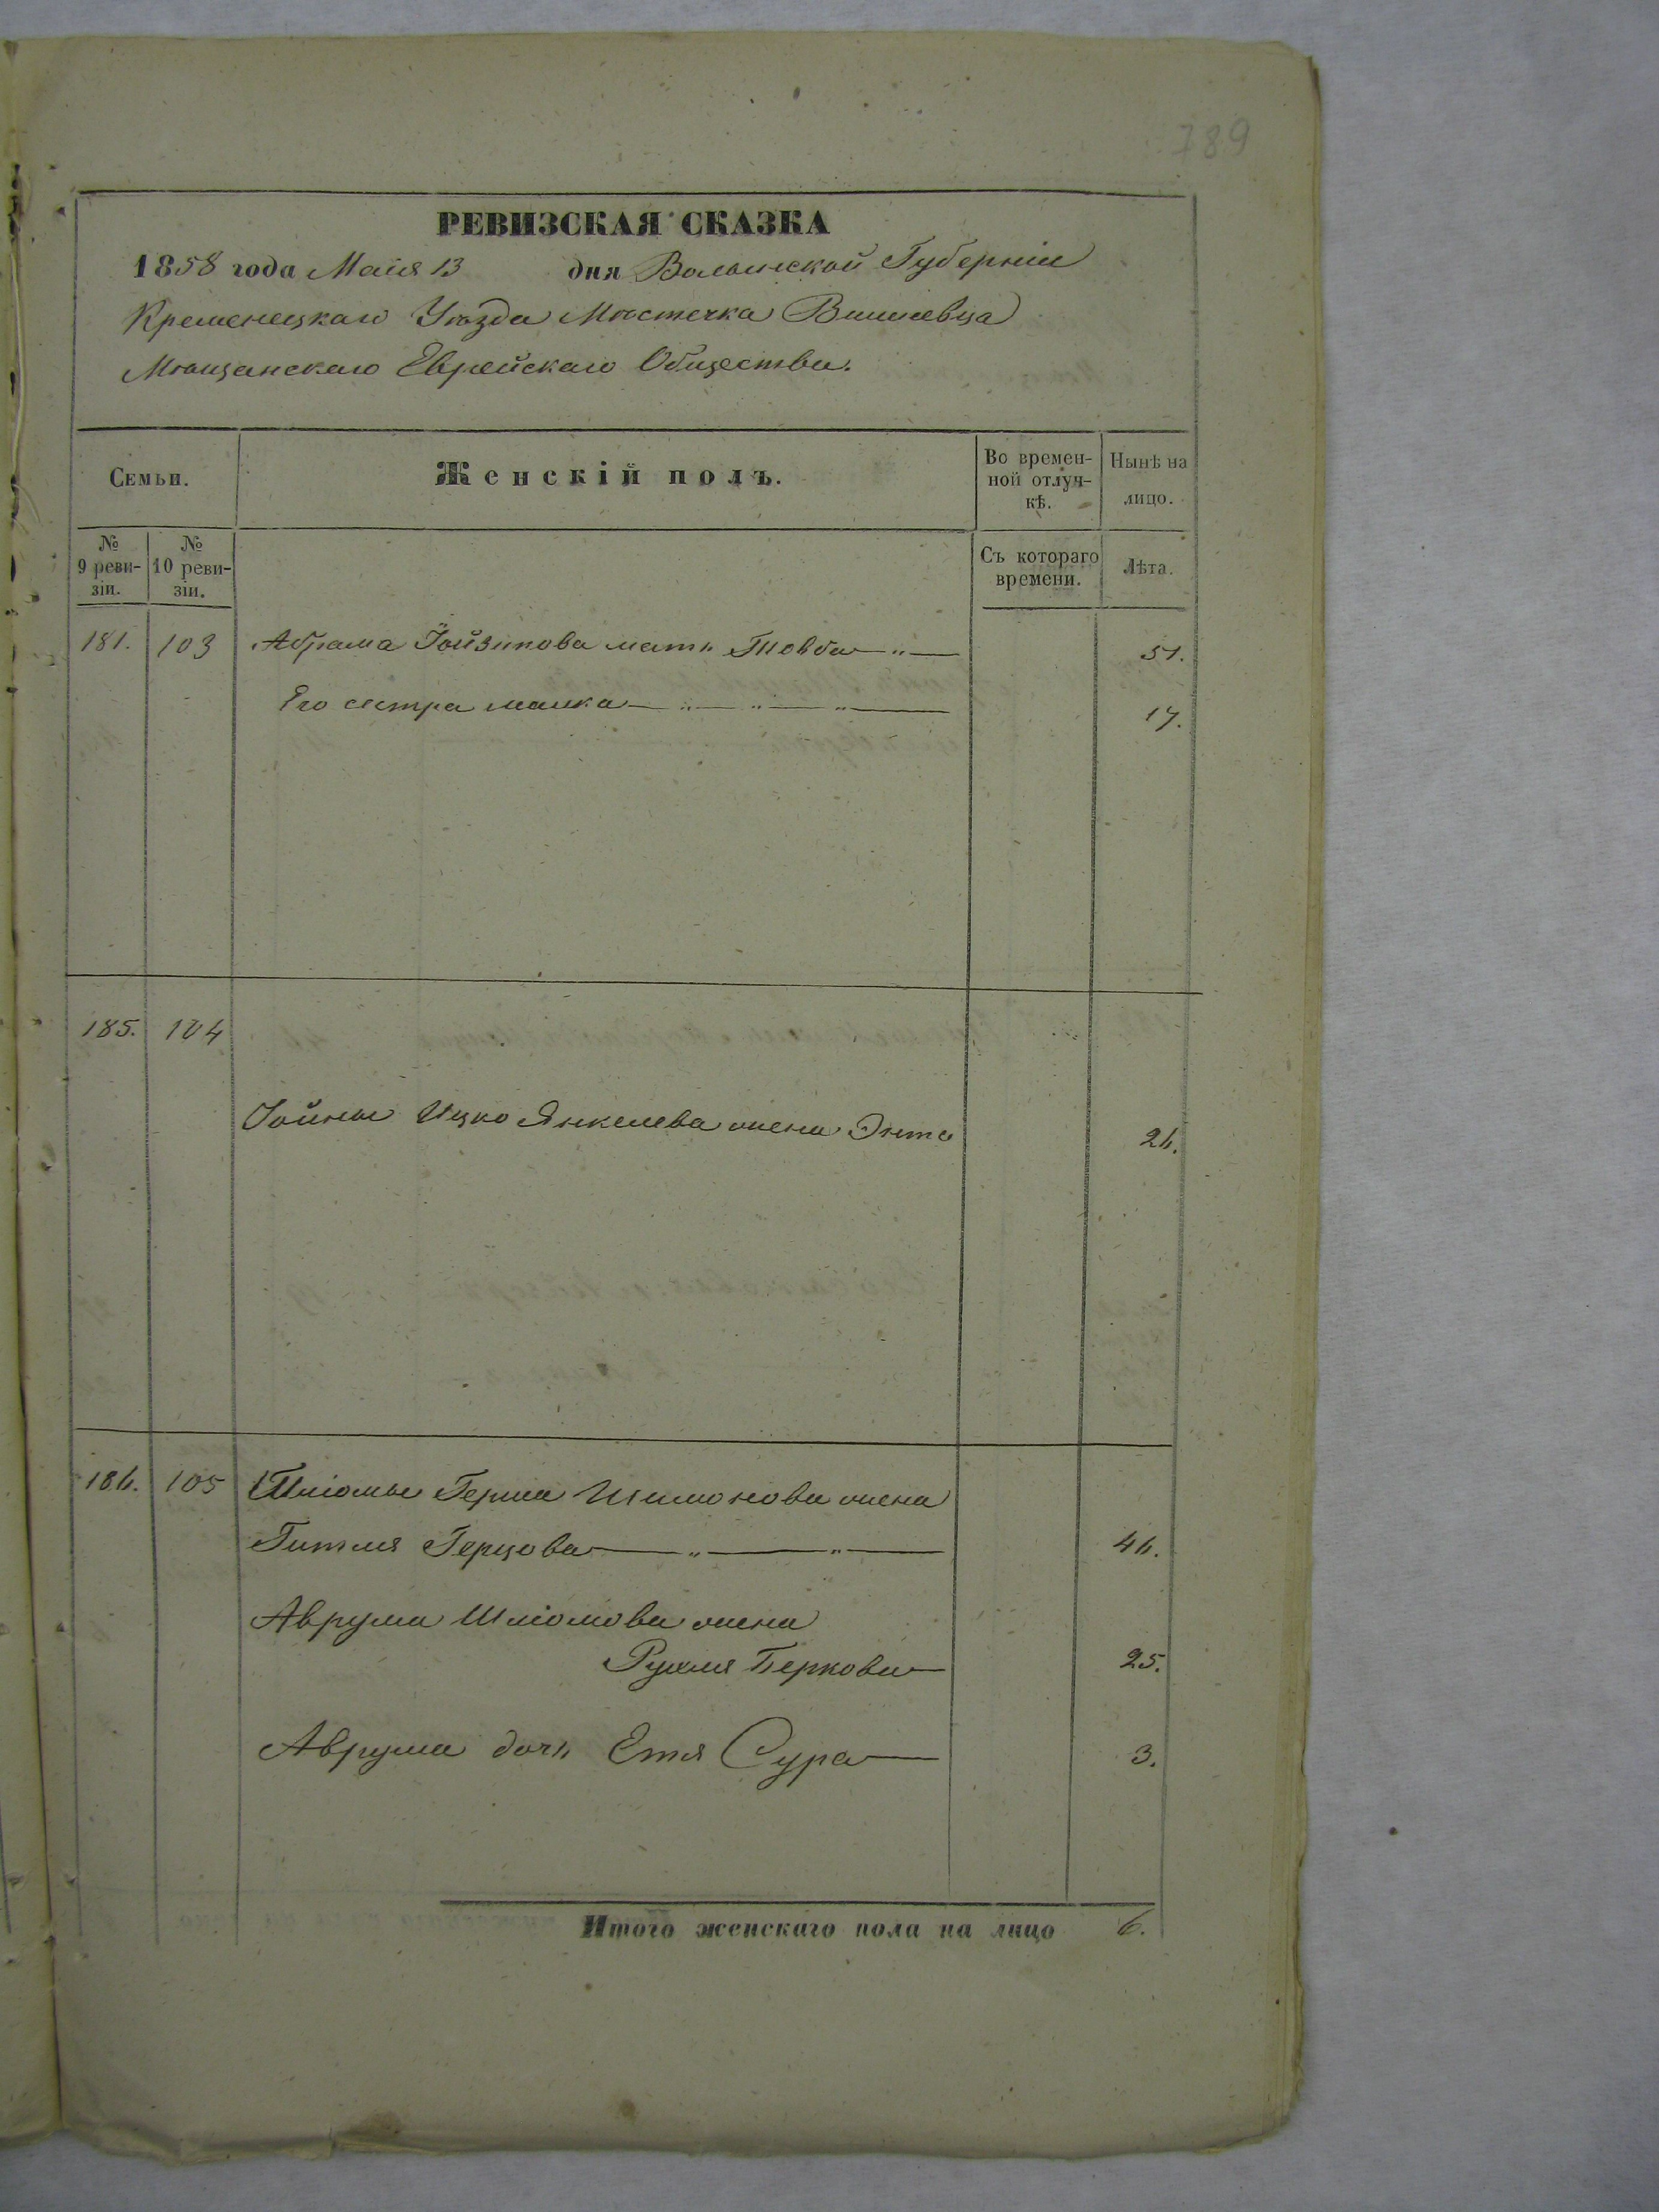 789
РЕВИЗСКАЯ СКАЗКА
1858 года Маія 13 дня Волынской Губерніи
Кременецкаго Уѣзда Мѣстечка Вишневца
Мѣщанскаго Еврейскаго Общества.
Семьи.
Женскій полъ.
Во времен-
ной отлуч-
кѣ.
Нынѣ на
лицо.
№
9 реви-
зіи.
№
10 реви-
зіи.
Съ котораго
времени.
Лѣта.
181. 103 Абрама Іойзипова мать Товба 51.
Его сестра малка 17.
185. 104
Іойны Ицко Янкелева жена Энта 26.
186. 105 Шліомы Герша Шимонова жена
Гитля Герцова 46.
Аврума Шліомова жена
Рухля Беркова 25.
Аврума дочь Етя Сура 3.
Итого женскаго пола на лицо 6.